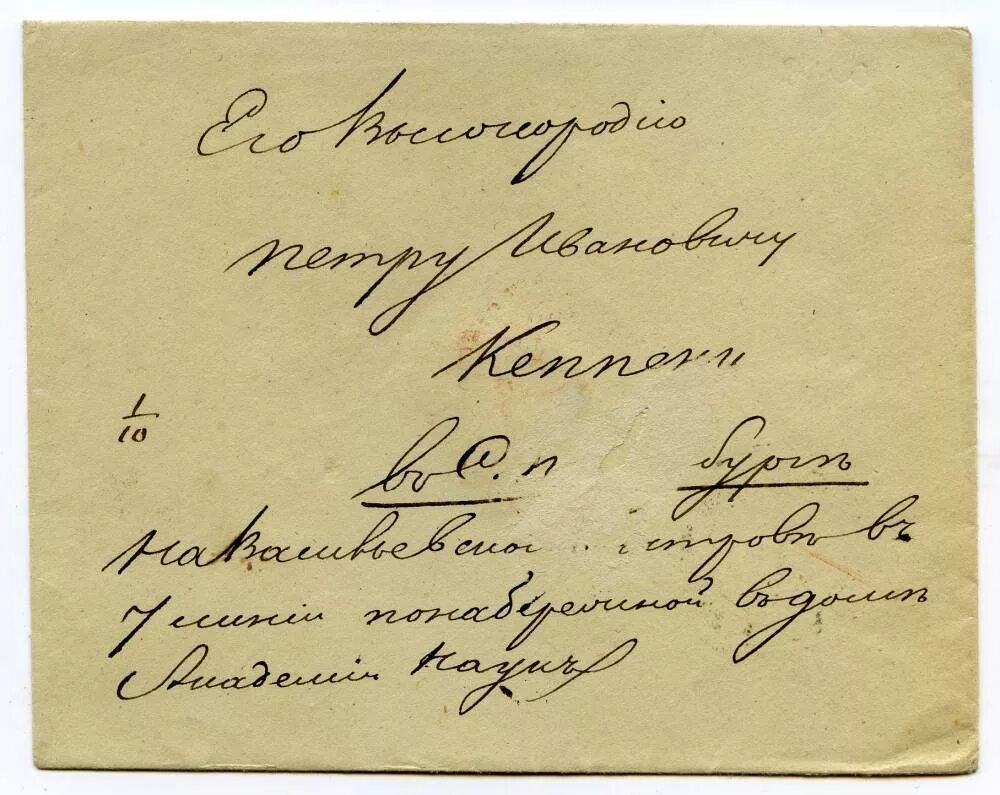 Его Высокородію
Петру Ивановичу
Кеппену
1/10
въ С. П бургѣ
на Васильевском островѣ въ
7 линіи по набережной въ домѣ
Академіи Наукъ